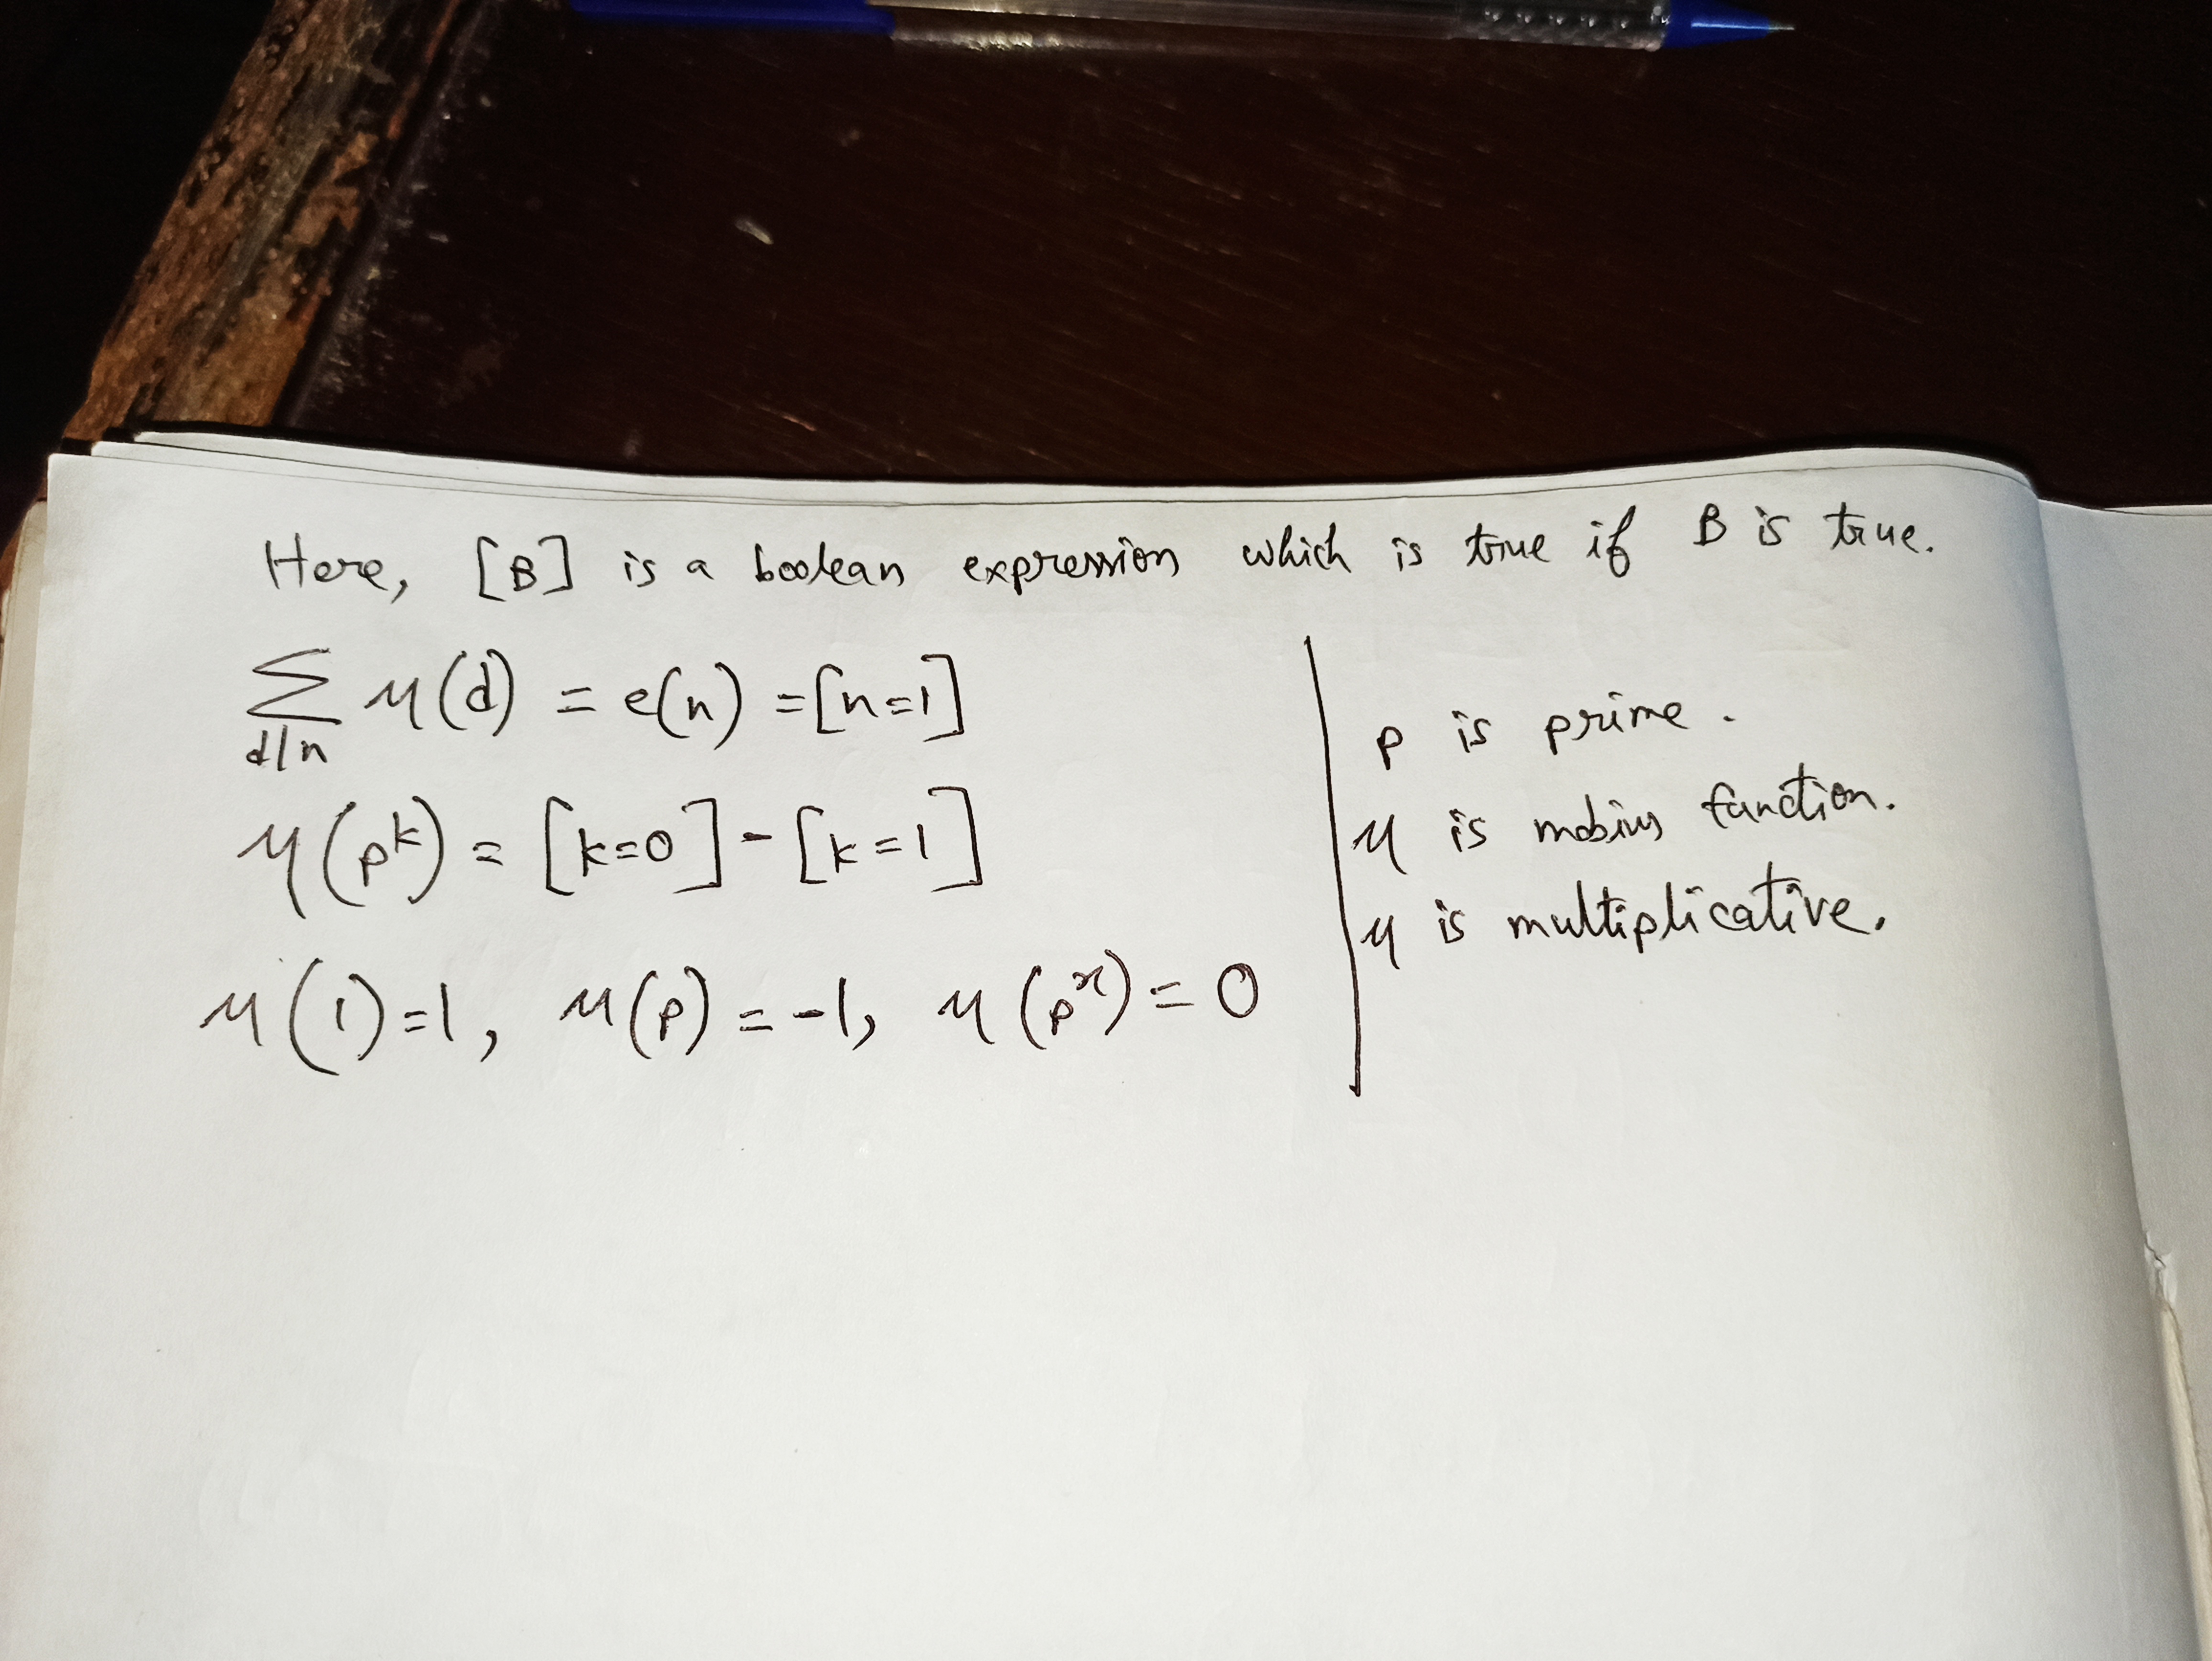 Here, [B] is a boolean expression which is true if B is true.
∑_{d|n} μ(d) = e(n) = [n=1]
μ(p^k) = [k=0] - [k=1]
μ(1)=1, μ(p) = -1, μ(p^x) = 0
p is prime.
μ is mobius function.
μ is multiplicative.